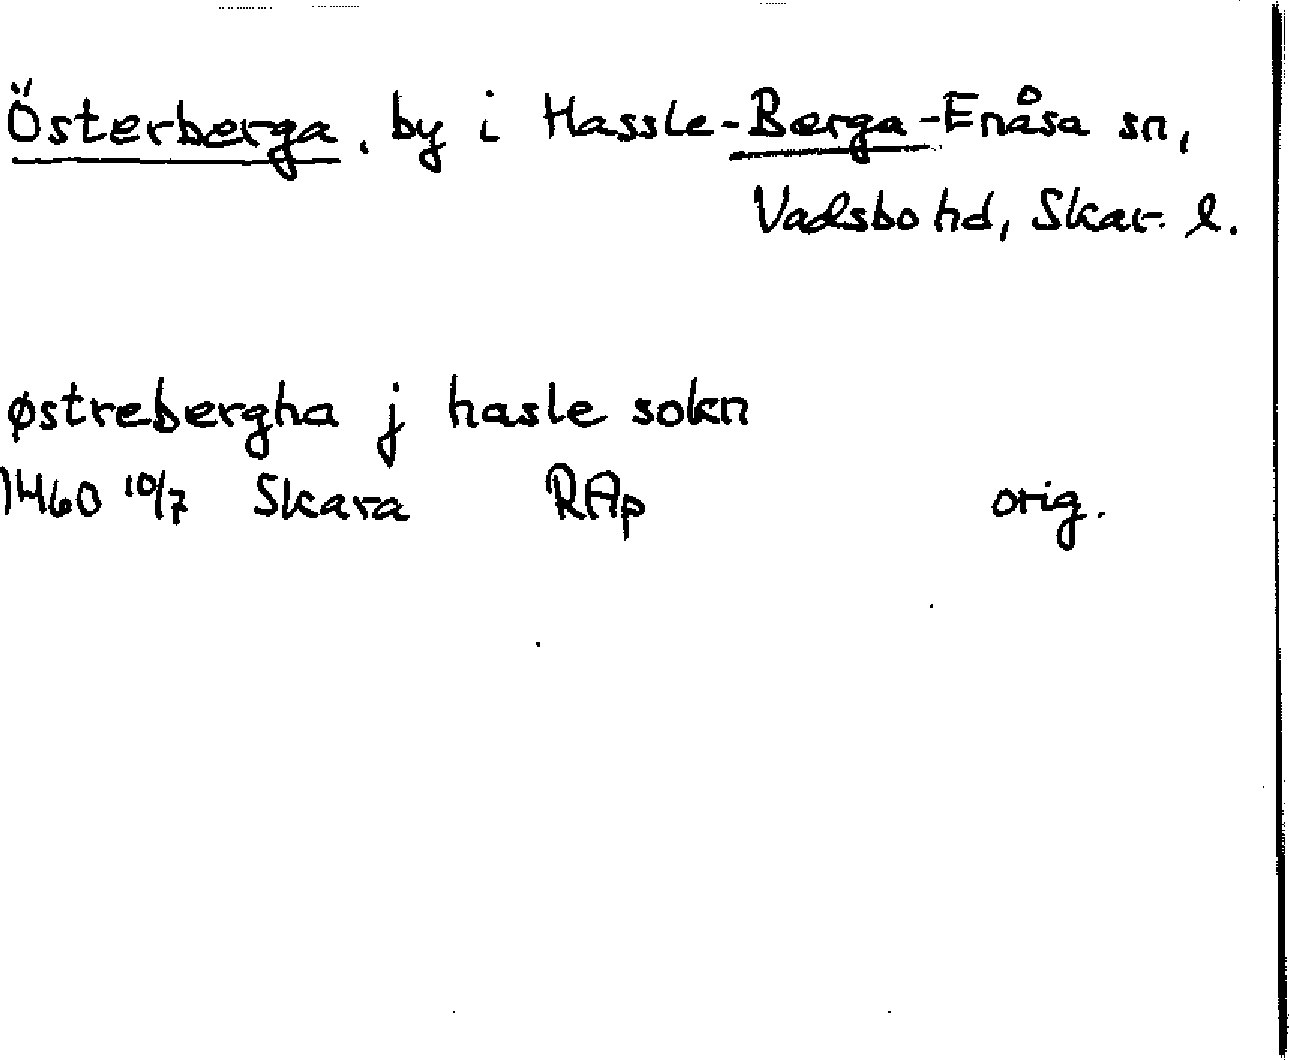 Österberga, by i Hassle-Berga-Enåsa sn,
Vadsbo hd, Skar. l.
østrebergha j hasle sokn
1460 10/7 Skara RAp orig.